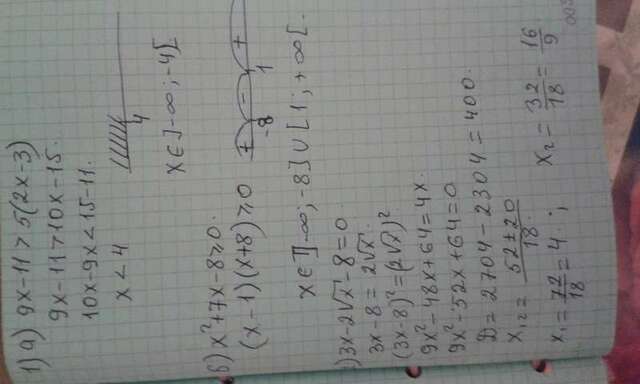 1) a) 9x-11>5(2x-3)
9x-11>10x-15.
10x-9x<15-11.
x<4
4
x∈]-∞;-4[
б) x²+7x-8≥0.
(x-1)(x+8)≥0
+ - +
-8 1
x∈]-∞;-8]∪[1;+∞[.
) 3x-2√x-8=0.
3x-8=2√x
(3x-8)²=(2√x)²
9x²-48x+64=4x.
9x²-52x+64=0
D=2704-2304=400.
x₁,₂=52±20/18
x₁=72/18=4; x₂=32/18=16/9